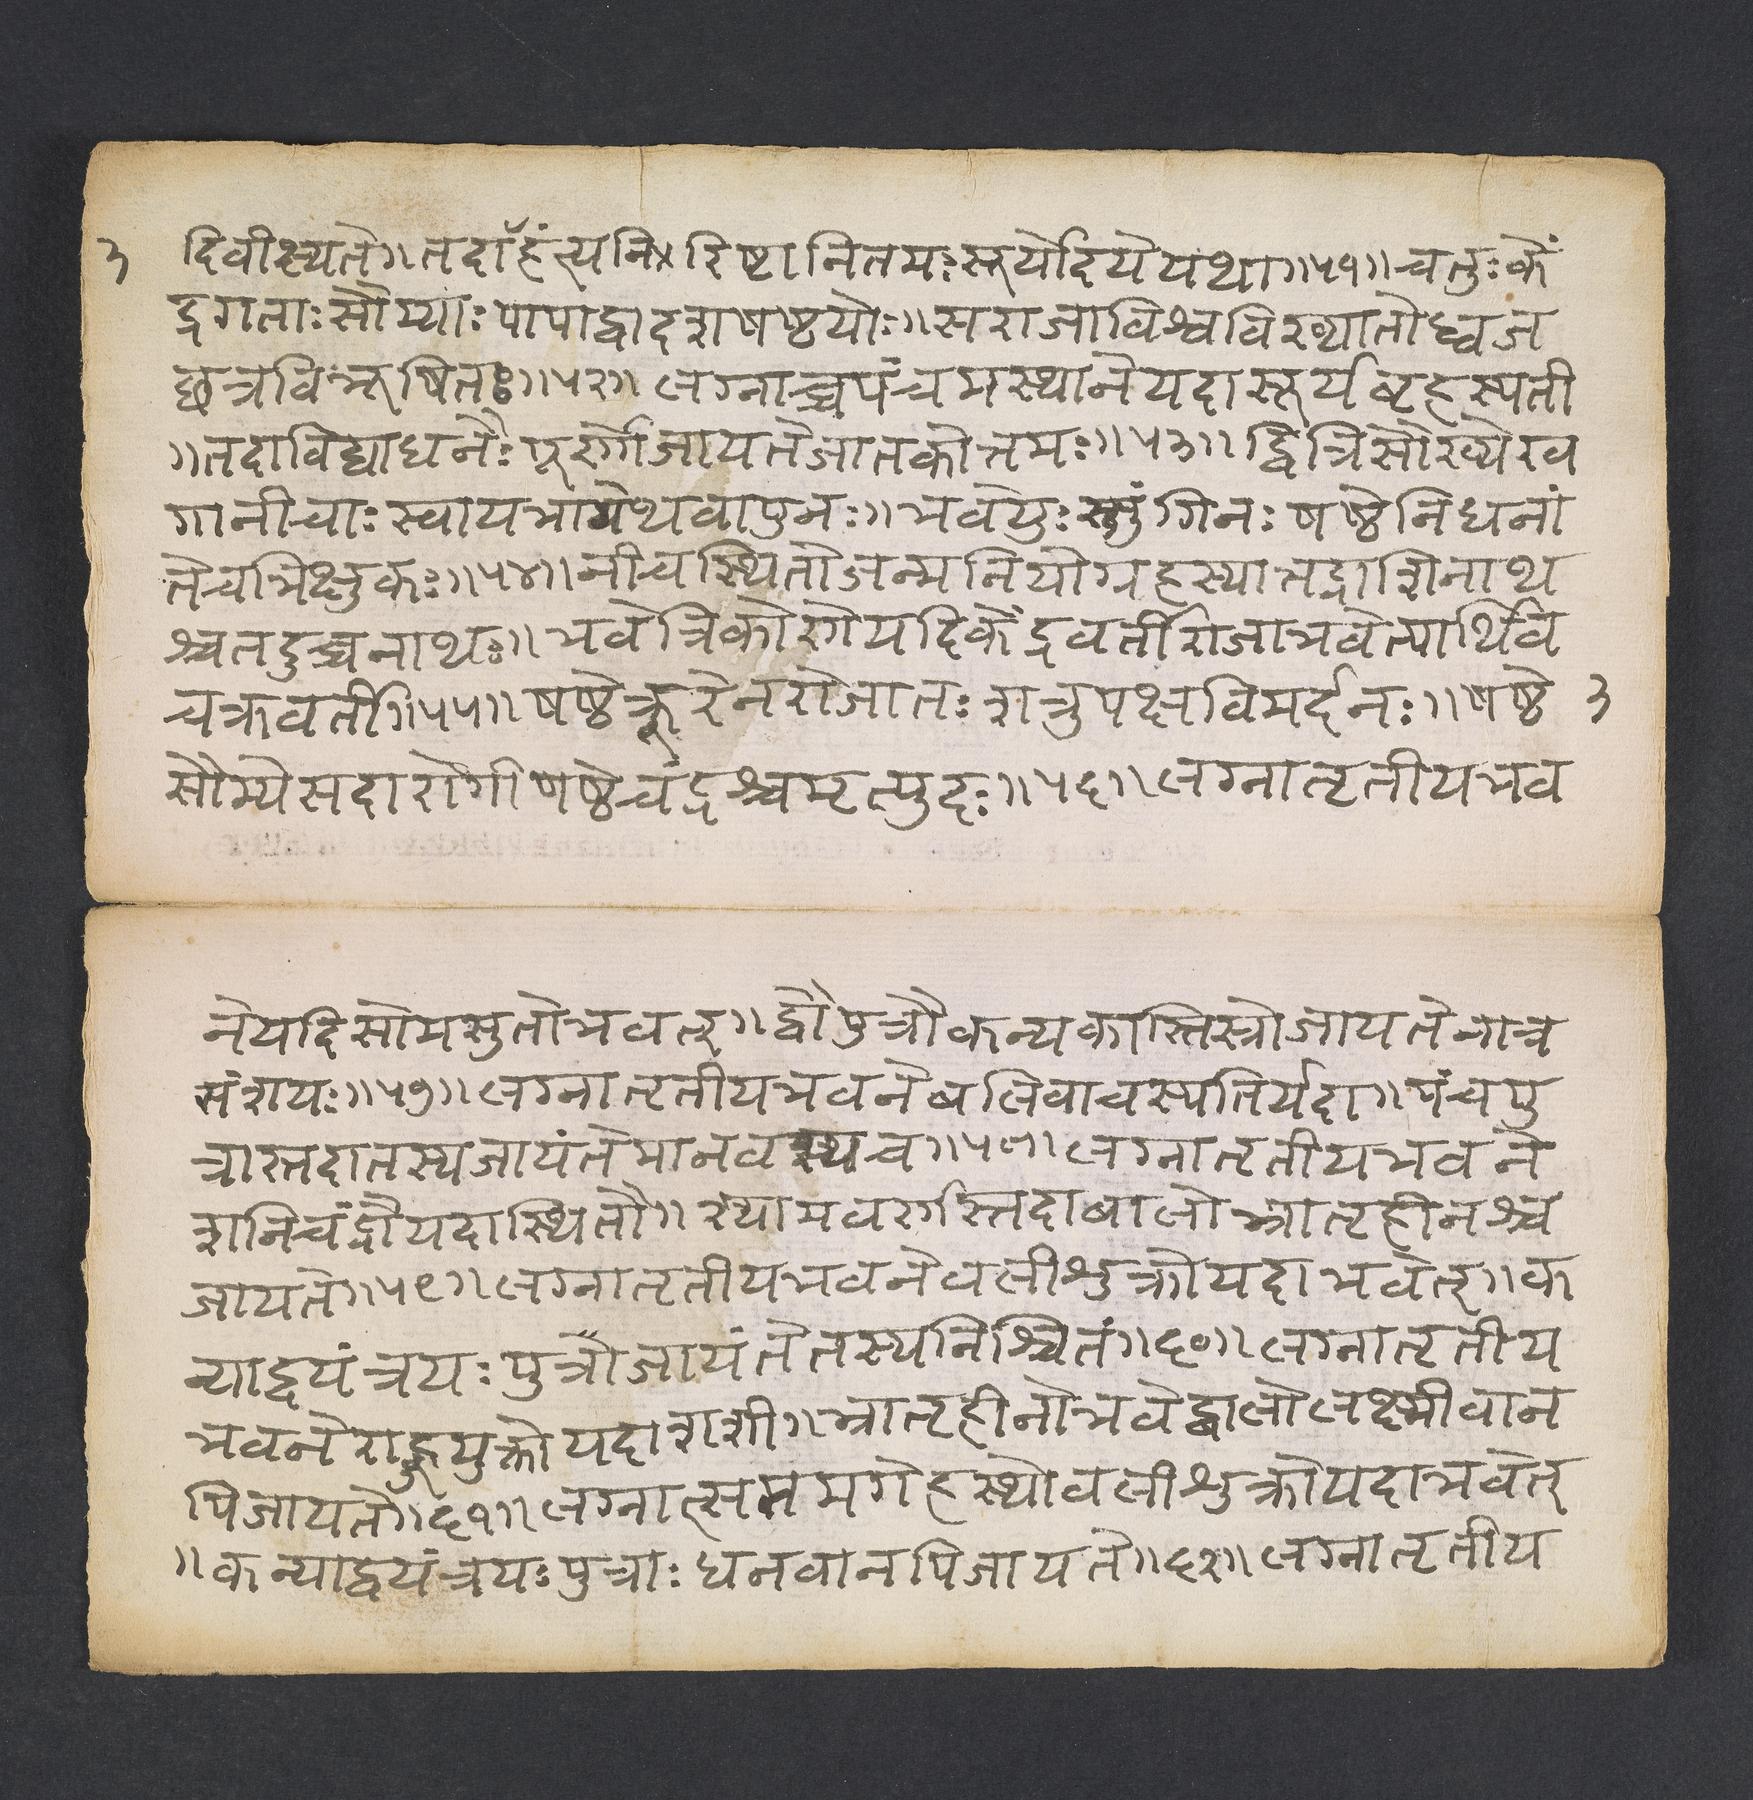 ३ दिवीक्ष्यते॥तदाहंत्यनिरिष्टानितमःसूर्योदयेयथा॥५१॥चतुःकें
द्रगताःसौम्याःपापाद्वादशषष्ठयोः॥सराजाविश्वविख्यातोध्वज
छत्रविभूषितः॥५२॥लग्नाच्चपंचमस्थानेयदासूर्यबृहस्पती
॥तदाविद्याधनैःपूर्णोजायतेजातकोत्तमः॥५३॥द्वित्रिसौख्येख
गानीचाःस्वायभागेथवापुनः॥भवेयुःस्तुंगिनःषष्ठेनिधनां
तेचभिक्षुकः॥५४॥नीचस्थितोजन्मनियोग्रहस्यात्तद्राशिनाथ
श्चतदुच्चनाथः॥भवेत्रिकोणेयदिकेंद्रवर्तीराजाभवेत्पार्थिव
चक्रवर्ती॥५५॥षष्ठेक्रूरेनरोजातःशत्रुपक्षविमर्दनः॥षष्ठे ३
सौम्येसदारोगीषष्ठेचंद्रश्चमृत्युदः॥५६॥लग्नातृतीयभव
नेयदिसोमसुतोभवत्॥द्वौपुत्रौकन्यकास्तिस्रोजायतेनात्र
संशयः॥५७॥लग्नातृतीयभवनेबलिवाचस्पतिर्यदा॥पंचपु
त्रास्तदातस्यजायंतेमानवस्यच॥५८॥लग्नातृतीयभवने
शनिचंद्रौयदास्थितौ॥श्यामवर्णस्तदाबालोभ्रातृहीनश्च
जायते॥५९॥लग्नातृतीयभवनेवलीशुक्रोयदाभवेत्॥क
न्याद्वयंत्रयःपुत्रौजायंतेतस्यनिश्चितं॥६०॥लग्नातृतीय
भवनेराहुयुक्तोयदाशशी॥भ्रातृहीनोभवेद्बालोलक्ष्मीवान
पिजायते॥६१॥लग्नात्सप्तमगेहस्थोवलीशुक्रोयदाभवेत्
॥कन्याद्वयंत्रयःपुत्राःधनवानपिजायते॥६२॥लग्नातृतीय